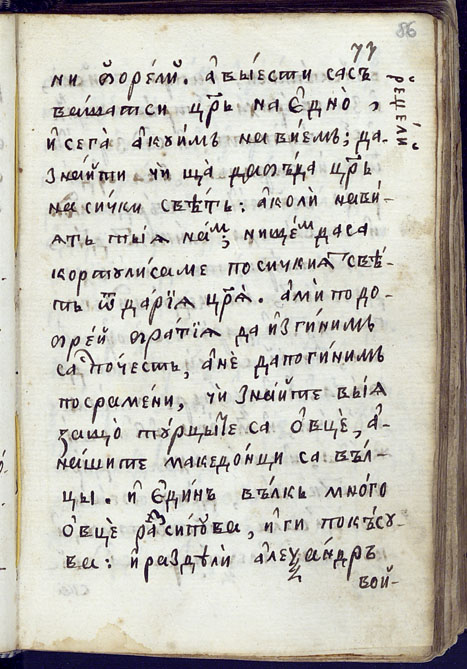 86
77
ни ѿоре́ли. а҆вы́ести сасъ
ва́шатси цр҃ь на є҆днò,
и҆ сегà а҆куи́мъ навїемъ; да-
зна́йти чѝ щà да бъ́да цр҃ь
на сѝчки свѣ́тъ: а҆колѝ навѝ-
ятъ ты́ѧ наⷨ; нищеⷨ да са
кортули́саме по си́чкиѧ свѣ-
тъ ѿ да́рїѧ цр҃ѧ. а҆мѝ подо-
брей бра́тїѧ да и҆зги́нимъ
са по́честь, а҆нè да поги́нимъ
посраме́ни, чѝ зна́йте вы́ѧ
защò ту́рцыте са ѻ҆вцè, а҆-
на́шите македо́нци са въ́л-
цы. и҆ є҆ди́нъ вълкъ мно́го
ѻ҆вцè расипу́ва, и҆ ги покъ́су-
ва: и҆ раздѣлѝ алеѯа́ндръ
вой-